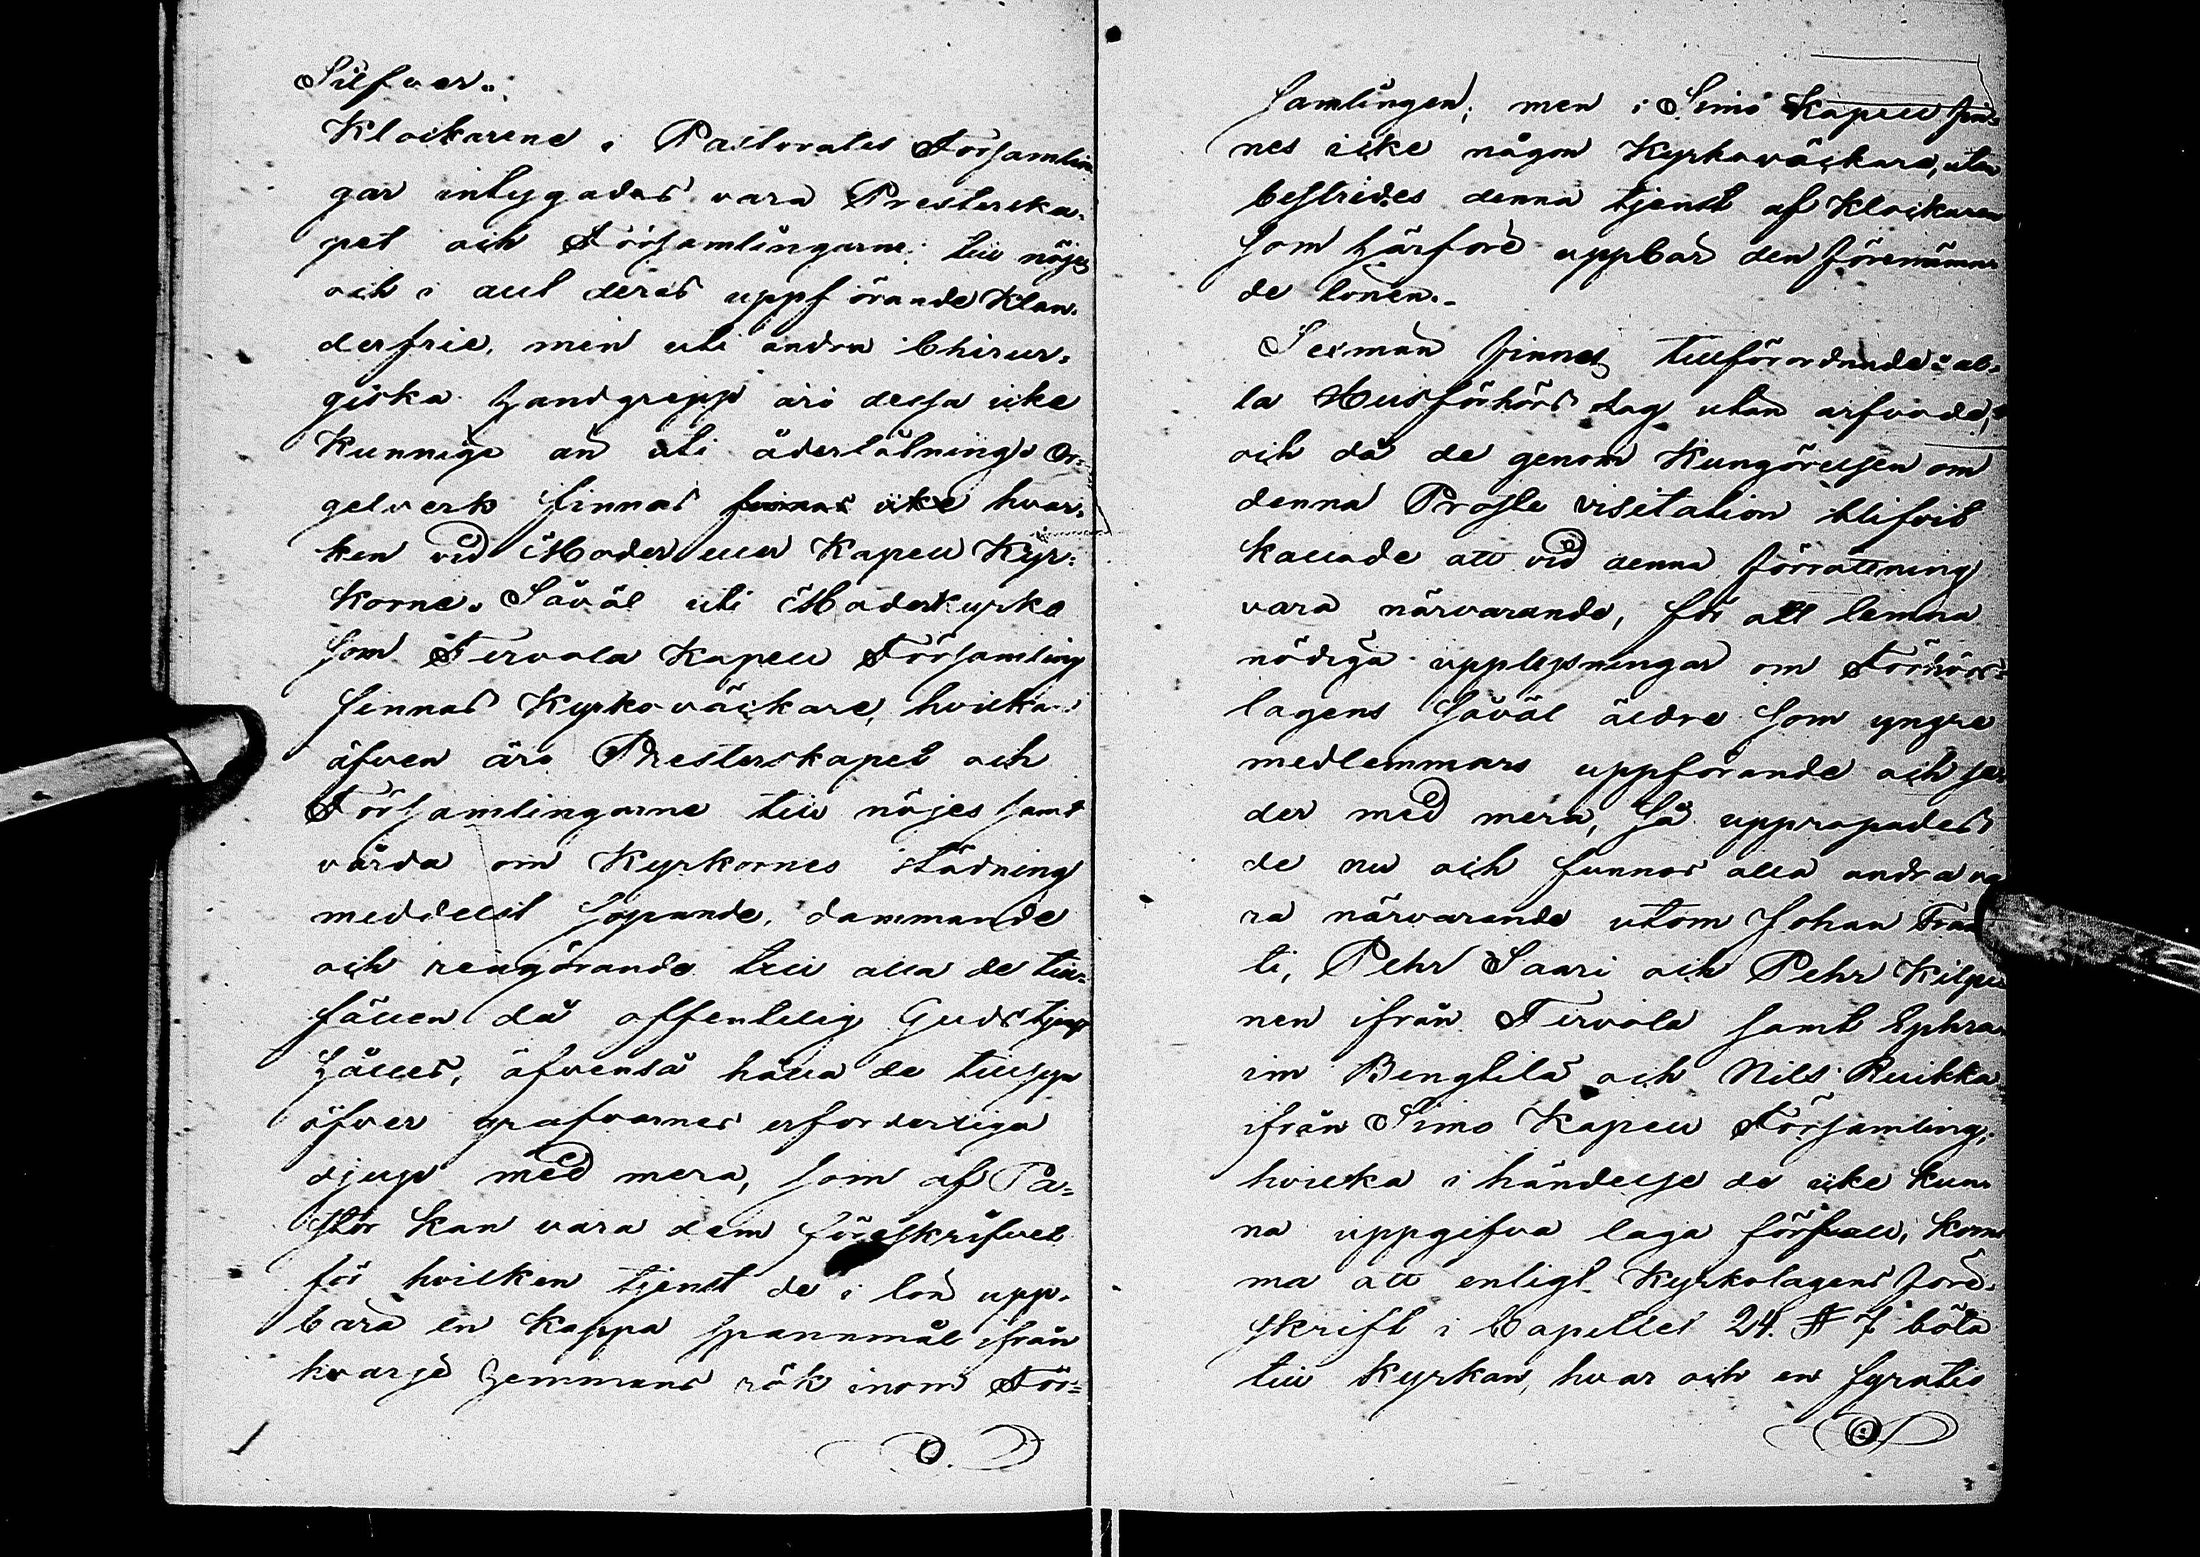 Silfver.
Klockarene i Pastorates Församlin
gar intygades vara Presterska-
pet och Församlingarne till nöjes
och i allt deras uppförande Klan-
derfrie, men uti andra Chirur-
giska Handgrepp äro dessa icke
Kunnige än uti åderlåtning. Or-
gelverk finnas finnas icke hvar-
ken vid Moder eller Kapell Kyr-
korne. Såväl uti Moderkyrko
som Tervola Kapell Församling
finnas Kyrkoväckare, hvilka
äfven äro Presterskapet och
Församlingarne till nöjes samt
vårda om Kyrkornes städning
meddelst sopande, dammande
och rengörande till alla de till-
fällen då offentelig Gudstjenst
Hålles, äfvenså hålla de tillsyn
öfver grafvarnes erforderliga
djup med mera, som af Pa-
stor kan vara dem föreskrifvet
för hvilken tjenst de i lön upp-
bära en Kappa spannmål ifrån
hvarje Hemmans rök inom För-
samlingen; men i Simo Kapell fin-
nes icke någon Kyrkoväckare, utan
bestrides denna tjenst af Klockaren
som härföre uppbär den förenämn-
de lönen.
Sexmän finnes tillförordnade i al-
la Husförhörs lag utan arfvode,
och då de genom Kungörelsen om
denna Proste visitation blifvit
kallade att vid denna förrättning
vara närvarande, för att lemna
nödiga upplysningar om Förhörs-
lagens såväl äldre som yngre
medlemmars uppförande och se-
der med mera, Så uppropades
de nu och funnos alla andra va
ra närvarande utom Johan
ti, Pehr Saari och Pehr Kilpu
nen ifrån Tervola samt Ephra-
im Bengtilä och Nils Ruikka
ifrån Simo Kapell Församling;
hvilka i händelse de icke kun-
na uppgifva laga förfall, kom-
ma att enligt Kyrkolagens före-
skrift i Capitlet 24. § 7 böta
till Kyrkan, hvar och en fyratio